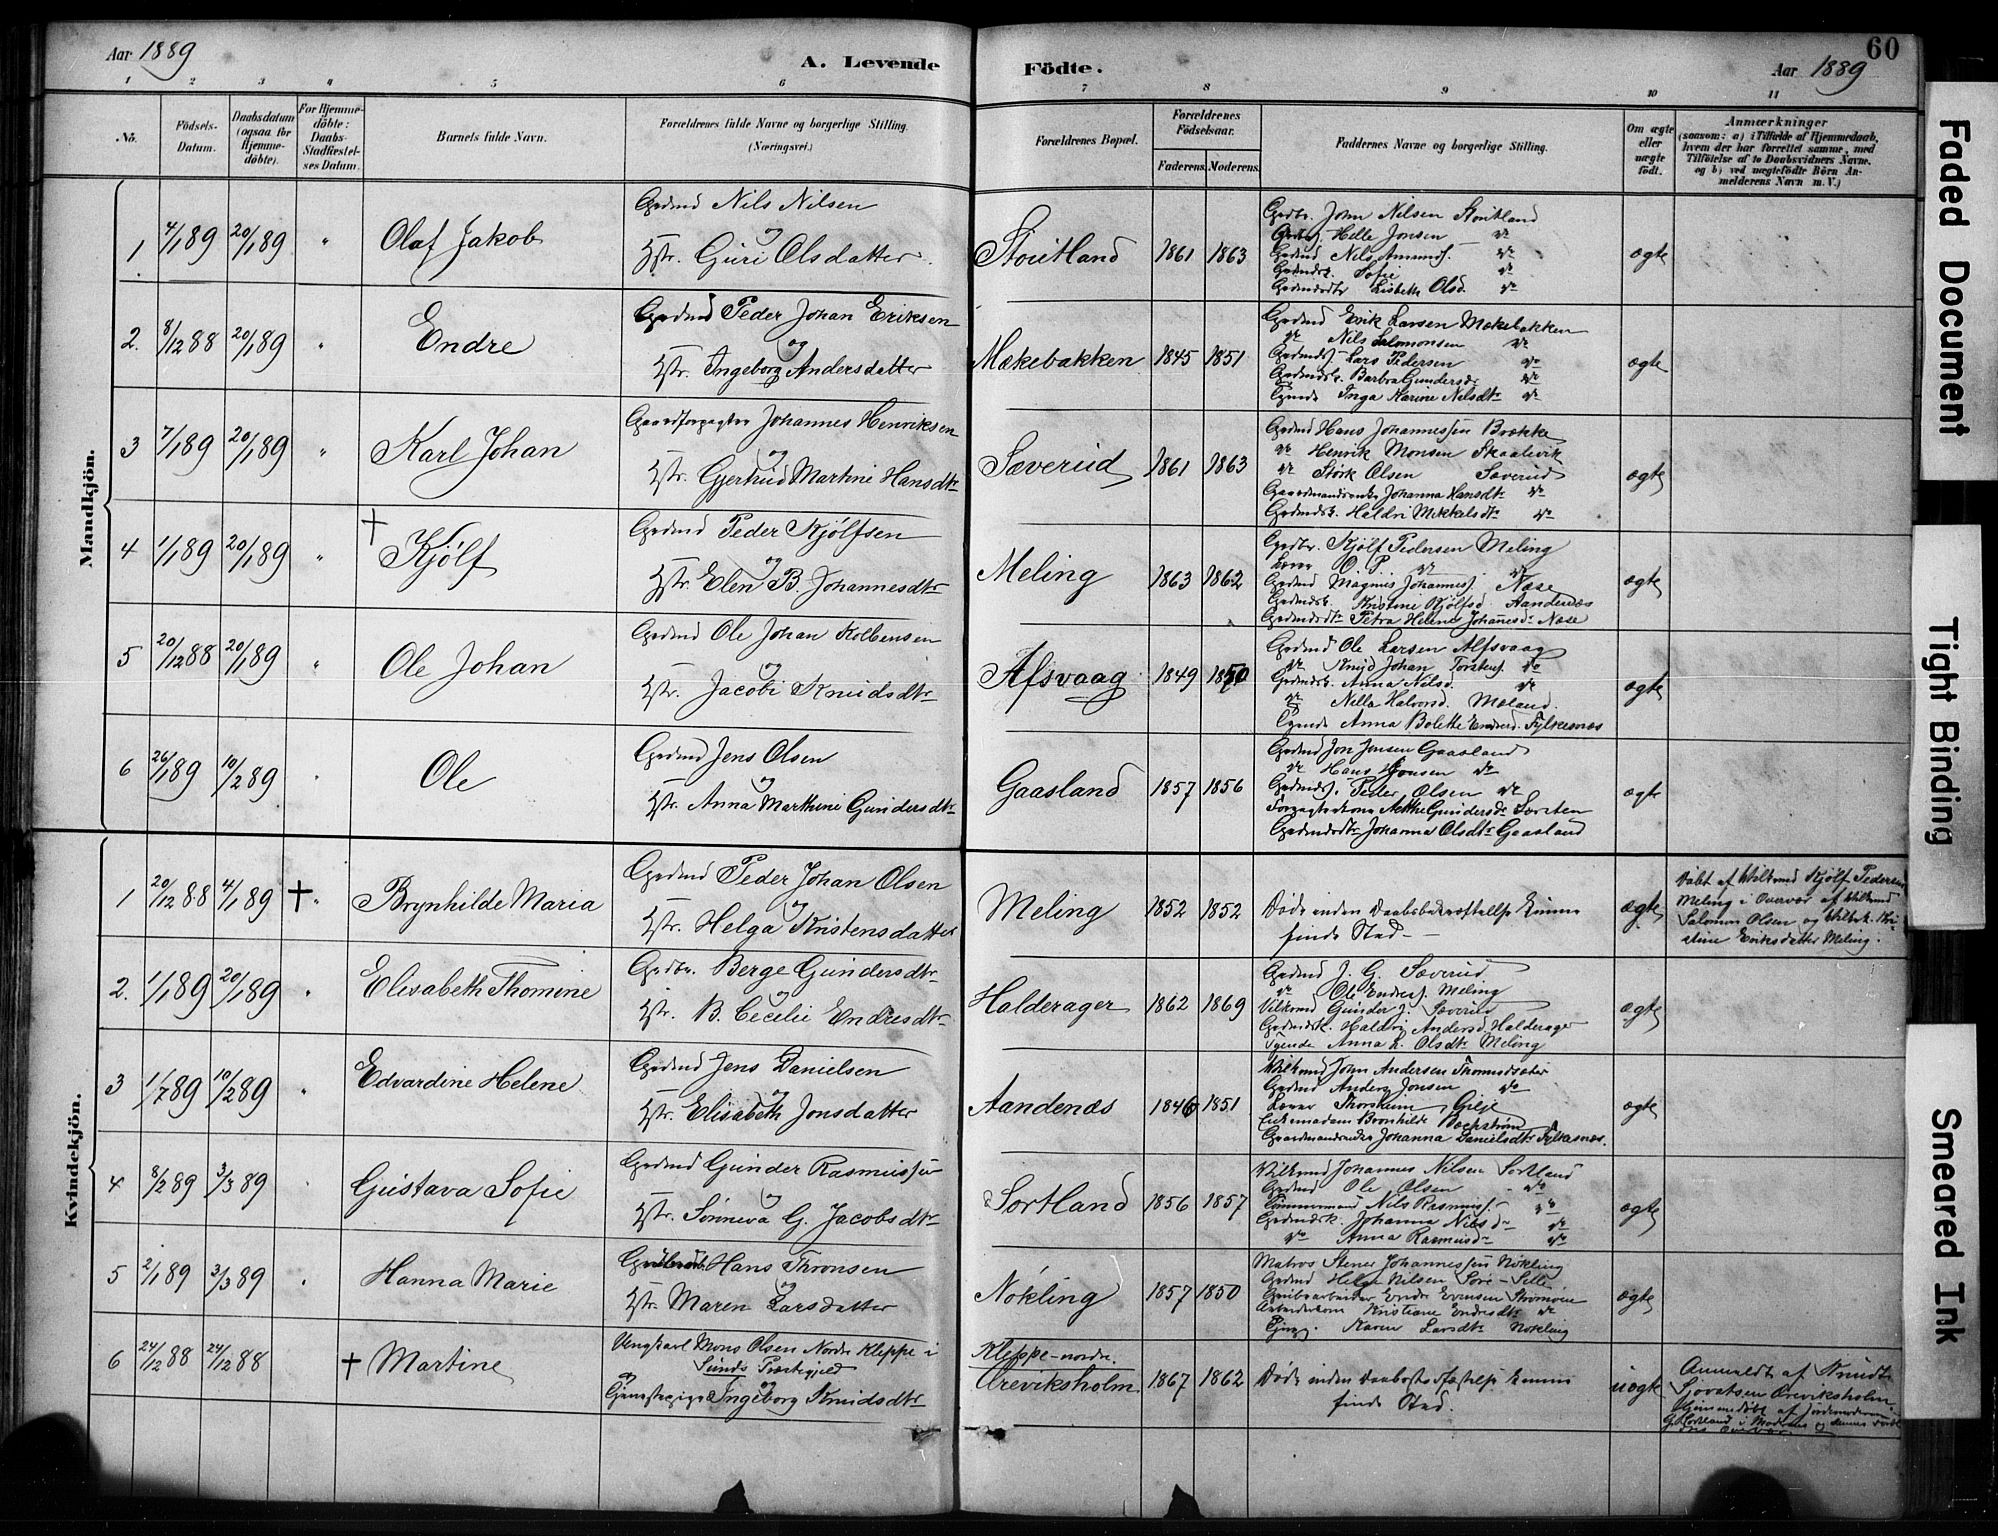 Aar 1889
A. Levende
Födte.
Aar 1889
60
1 2 3 4 5 6 7 8 9 10 11
No.
Födsels-
Datum.
Daabsdatum
(ogsaa for
Hjemme-
döbte).
For Hjemme-
döbte:
Daabs-
Stadfæstel-
ses Datum.
Barnets fulde Navn.
Forældrenes fulde Navne og borgerlige Stilling.
(Næringsvei.)
Forældrenes Bopæl.
Forældrenes
Födselsaar.
Faderens. Moderens.
Faddernes Navne og borgerlige Stilling.
Om ægte
eller
uægte
födt.
Anmærkninger
(saasom: a) i Tilfælde af Hjemmedaab,
hvem der har forrettet samme, med
Tilföielse af to Daabsvidners Navne.
og b) ved uægtefödte Börn An-
melderens Navn m. V.)
Mandkjön.
1 4/1 89 20/1 89 " Olaf Jakob
Grdmd Nils Nilsen
og
Hstr. Guri Olsdatter
Stoutland 1861 1863
Grdbr. John Nilsen Stoutland
Helle Jonsen do
Grdmd Nils Amunds. do
Grdmdsk. Sofie do
Grdmdsdtr Lisbeth Olsd. do
ægte
2. 8/12 88 20/1 89 " Endre
Grdmd Peder Johan Eriksen
og
Hstr. Ingeborg Andersdatter
Mækebakken 1845 1851
Grdmd Erik Larsen Mækebakken
do Nils Salomonsen do
Grdmds. Lars Pedersen do
Grdmdsk. Barbra Gundersd. do
Pigende Inga Karine Nilsdtr do
ægte
3 7/1 89 20/1 89 " Karl Johan
Gaardforpagter Johannes Henriksen
og
Hstr. Gjertrud Martine Hansdtr
Sæverud 1861 1863
Grdmd Hans Johannessen Brække
do Henrik Monsen Skaalevik
do Størk Olsen Sæverud
Gaardmandsenke Johanna Hansdtr do
Grdmdsk. Haldri Mikkelsdtr do
ægte
4 1/1 89 20/1 89 " † Kjølf
Grdmd Peder Kjølfsen
og
Hstr. Elen B. Johannesdtr
Meling 1863 1862
Grdbr. Kjølf Pedersen Meling
Lærer O. P. do
Grdmd Magnus Johanness. Næse
Grdmdsk. Kristine Kjølfsd. Aandenæs
Grdmdsdtr Petra Helene Johanesd. Næse
ægte
5 20/12 88 20/1 89 " Ole Johan
Grdmd Ole Johan Kolbensen
og
Hstr. Jacobi Knudsdtr
Afsvaag 1849 1850
Grdmd Ole Larsen Alfsvaag
do Knud Johan Torstens. do
Grdmdsk. Anna Nilsd. do
do Nilla Halvorsd. Mæland
Pigende Anna Bolette Endresd. Fylkesnæs
ægte
6 26/1 89 10/2 89 Ole
Grdmd Jens Olsen
og
Hstr. Anna Marthine Gundersdtr
Gaasland 1857 1856
Grdmd Jon Jensen Gaasland
do Hans Hansen do
Grdmds. Peder Olsen do
Forpagterkone Aethe Gundersdr
Grdmdsdtr Johanna Olsdtr Gaasland
ægte
Kvindekjön.
1 20/12 88 4/1 89 † " Brynhilde Maria
Grdmd Peder Johan Olsen
og
Hstr. Helga Kristensdatter
Meling 1852 1852
Døde inden Daabsbekræftelse kunne
finde Sted –
ægte
Døbt af Vilkmd Kjølf Pedersen
Meling i Overvær af Vilkmd
Salomon Olsen og Vilkk. Kri-
stine Eriksdatter Meling.
2. 1/1 89 20/1 89 " Elisabeth Thomine
Grdbr. Berge Gundersdtr
og
Hstr. B. Cecilie Endresdtr
Halderager 1862 1869
Grdmd J. G. Sæverud
do Ole Endres. Meling
Vilkmd Gunder J. Sæverud
Grdmdsk. Haldri Andersd. Halderager
Pigende Anna L. Olsdtr Meling
ægte
3 1/7 89 10/2 89 " Edvardine Helene
Grdmd Jens Danielsen
og
Hstr. Elisabeth Jonsdatter
Aandenæs 1846 1851
Vilkmd John Andersen Thomasæter
Grdmd Anders Jonsen do
Lærer Thorsheim Gilje
Enkemadam Bronhilde Bæckstrøm
Gaardmandsenke Johanna Danielsdtr Fylkesnæs.
ægte
4 8/2 89 3/3 89 Gustava Sofie
Grdmd Gunder Rasmussen
og
Hstr. Sønneva G. Jacobsdtr
Sortland 1856 1857
Vilkmd Johannes Nilsen Sortland
Grdmd Ole Olsen do
Tømmermand Nils Rasmuss. do
Grdmdsk. Johanna Nilsdr do
do Anna Rasmusdr do
ægte
5 2/1 89 3/3 89 Hanna Marie
Hans Thronsen
og
Hstr. Maren Larsdatter
Nøkling 1857 1850
Matros Stener Johannessen Nøkling
Grdmd Helge Nilsen Sore-Lille
Grubearbeider Endre Evensen Strømøen
Arbeiderkone Kristiane Endresdtr do
Karen Larsdtr Nøkling
ægte
6 24/12 88 24/12 88 † Martine
Ungkarl Mons Olsen Nordre Kleppe i
Sunds Præstegjeld
og
Tjenestepige Ingeborg Knudsdtr
Kleppe-nordre.
Urevikshølm 1867 1862
Døde inden Daabsstadfæstelse kunne
finde Sted.
uægte
Anmeldt af Knudt
Sjovatsen Urevikshølm.
Hjemmedøbt af Jordemoderen